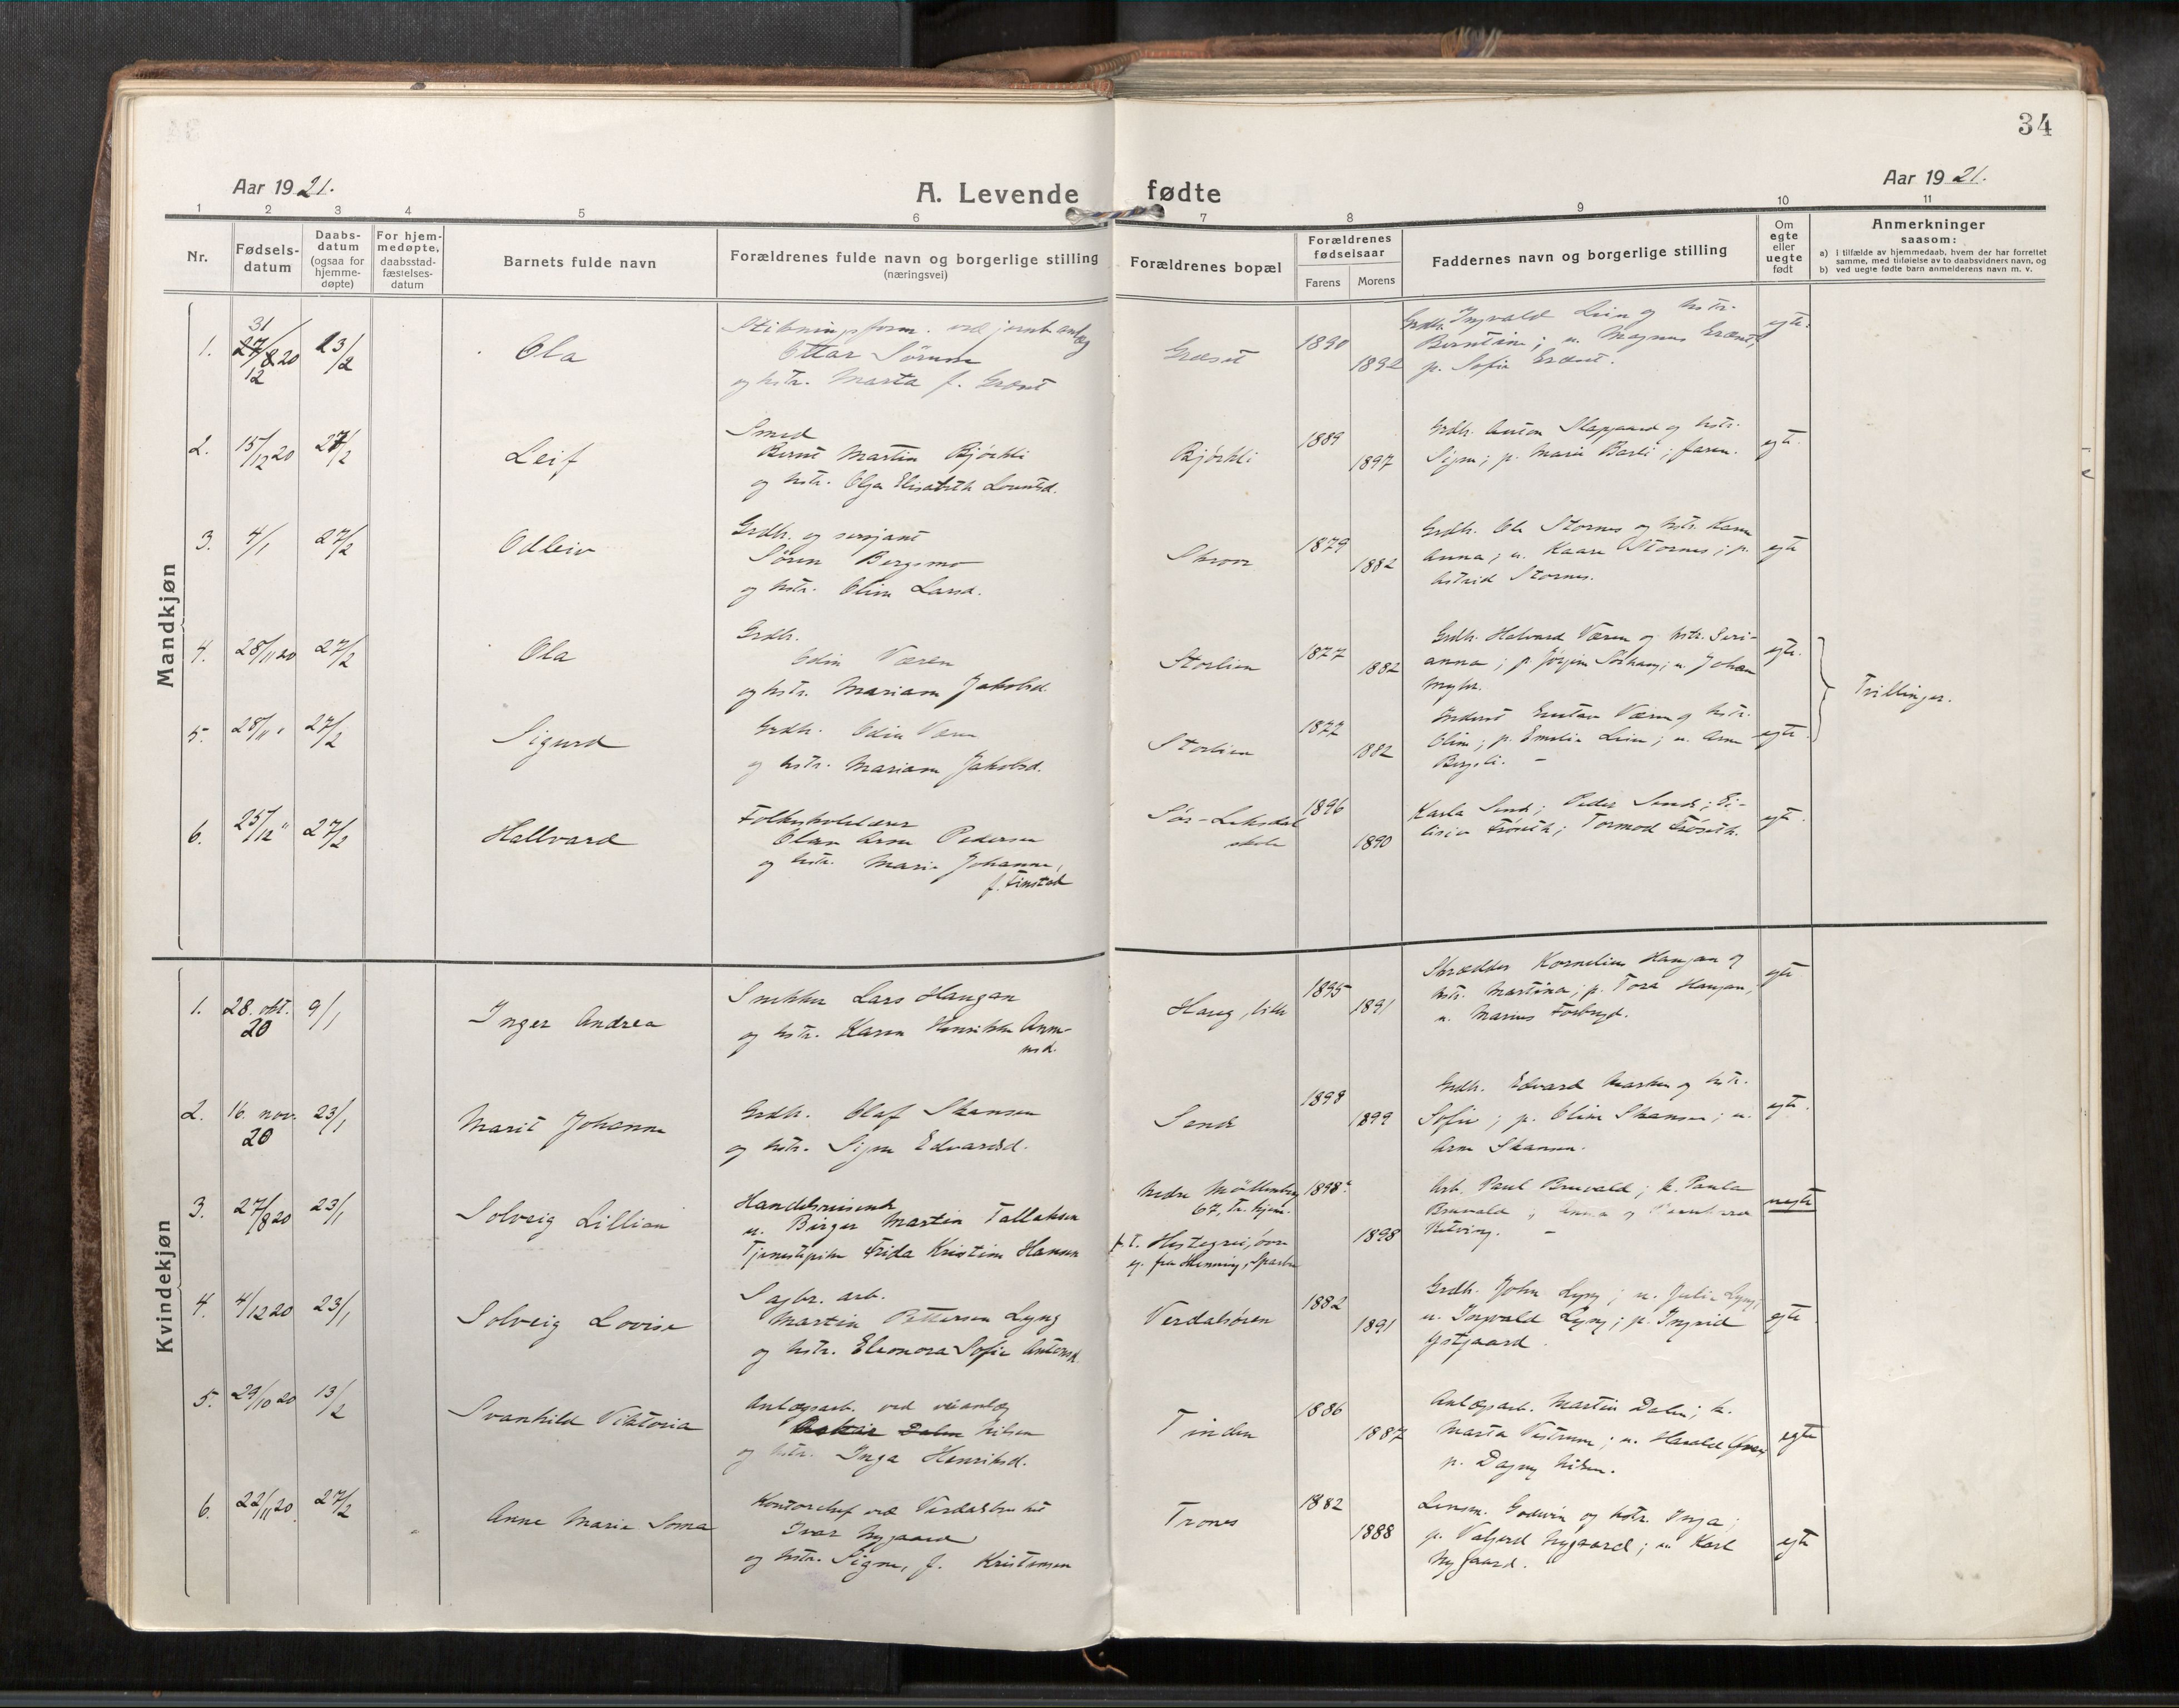 34
Aar 1921.
A. Levende fødte
Aar 1921.
1 2 3 4 5 6 7 8 9 10 11
Nr.
Fødsels-
datum
Daabs-
datum
(ogsaa for
hjemme-
døpte)
For hjem-
medøpte,
daabsstad-
fæstelses-
datum
Barnets fulde navn
Forældrenes fulde navn og borgerlige stilling
(næringsvei)
Forældrenes bopæl
Forældrenes
fødselsaar
Farens Morens
Faddernes navn og borgerlige stilling
Om
egte
eller
uegte
født
Anmerkninger
saasom:
a) i tilfælde av hjemmedaab, hvem der har forrettet
samme, med tilføielse av to daabsvidners navn, og
b) ved uegte fødte barn anmelderens navn m. v.
Mandkjøn
1. 31/12 20 23/2
Ola
Ottar Sørum
og hstr. Marta f.
1890
1892
Grdbr. Ingvald Lein og hstr.
Berntine; u. Magnus
p. Sofie
egte.
2. 15/12 20 27/2
Leif
Smed
Bernt Martin Bjørkli
og hstr. Olga Elisabeth
Bjørkli
1889
1897
Grdbr. Anton og hstr.
Signe; p. Marie Barli; faren.
egte.
3. 4/1 27/2
Odleiv
Grdbr. og sersjant
Søren Bergsmo
og hstr. Oline Larsd.
1879
1882
Grdbr. Ole Stornes og hstr. Karen
Anna; u. Kaare Stornes; p.
Astrid Stornes.
egte
4. 28/11 20 27/2
Ola
Grdbr.
Odin Væren
og hstr. Mariane Jakobsd.
Storlien
1877
1882
Grdbr. Halvard Væren og hstr. Seri-
anna; p. u. Johan
Myhr.
egte.
Trillinger.
5. 28/11 " 27/2
Sigurd
Grdbr. Odin Væren
og hstr. Mariane Jakobsd.
Storlien
1877
1882
Gustav Væren og hstr.
Oline; p. Emelie Lein; u. Arne
Bergli. -
egte.
6. 25/12 " 27/2
Hallvard
Folkeskolelærer
Olav Arne Pedersen
og hstr. Marie Johanne,
f. Tinstad
Sør-Leksdal
skole
1896
1890
Karla Send; Peder Sende;
Trøseth; Tormod Trøseth.
egte.
Kvindekjøn
1. 28. okt. 20 9/1
Inger Andrea
Snekker Lars Haugan
og hstr. Karen Henrikke
Haug, lille
1895
1891
Skrædder Kornelius Haugan og
hstr. Martina; p. Tora Haugan,
u. Marius Forbregd.
egte
2. 16. nov. 20 23/1
Marit Johanne
Grdbr. Olaf Skansen
og hstr. Signe Edvardsd.
Sende
1898
1899
Grdbr. Edvard og hstr.
Sofie; p. Oline Skansen; u.
Arne Skansen.
egte.
3. 27/8 20 23/1
Solveig Lillian
Handelsreisende
u. Birger Martin Tallaksen
Tjenestepike Frida Kristine Hansen
Nedre Møllenberg
67, Tr.hjem.
p.t. Hestegrei, øvre
eg. fra Henning, Sparbu
1898.
1898
Arb. Paul Bruvald; k. Paula
Bruvald, Anna og
-
uegte
4. 4/12 20 23/1
Solveig Lovise
Sagbr. arb.
Martin Pettersen Lyng
og hstr. Eleonora Sofie Antonsd.
Verdalsøren
1882
1891
Grdbr. John Lyng; u. Julie Lyng;
u. Ingvald Lyng; p. Ingrid
Østgaard.
egte
5. 29/10 20 13/2
Svanhild Viktoria
Anlegsarb. ved veianlæg
Dalen Nilsen
og hstr. Inga Henriksd.
Tinden
1886
1887
Anlegsarb. Martin Dalen; k.
Marta Vestrum; u. Harald
p. Dagny Nilsen.
egte
6. 22/11 20 27/2
Anne Marie Soma
Kontorchef ved Verdalsbruket
Ivar Nygaard
og hstr. Signe, f. Kristensen
Trones
1882
1888
Lensm. Godvin og hstr. Inga;
p. Valgerd Nygaard; u. Karl
Nygaard.
egte